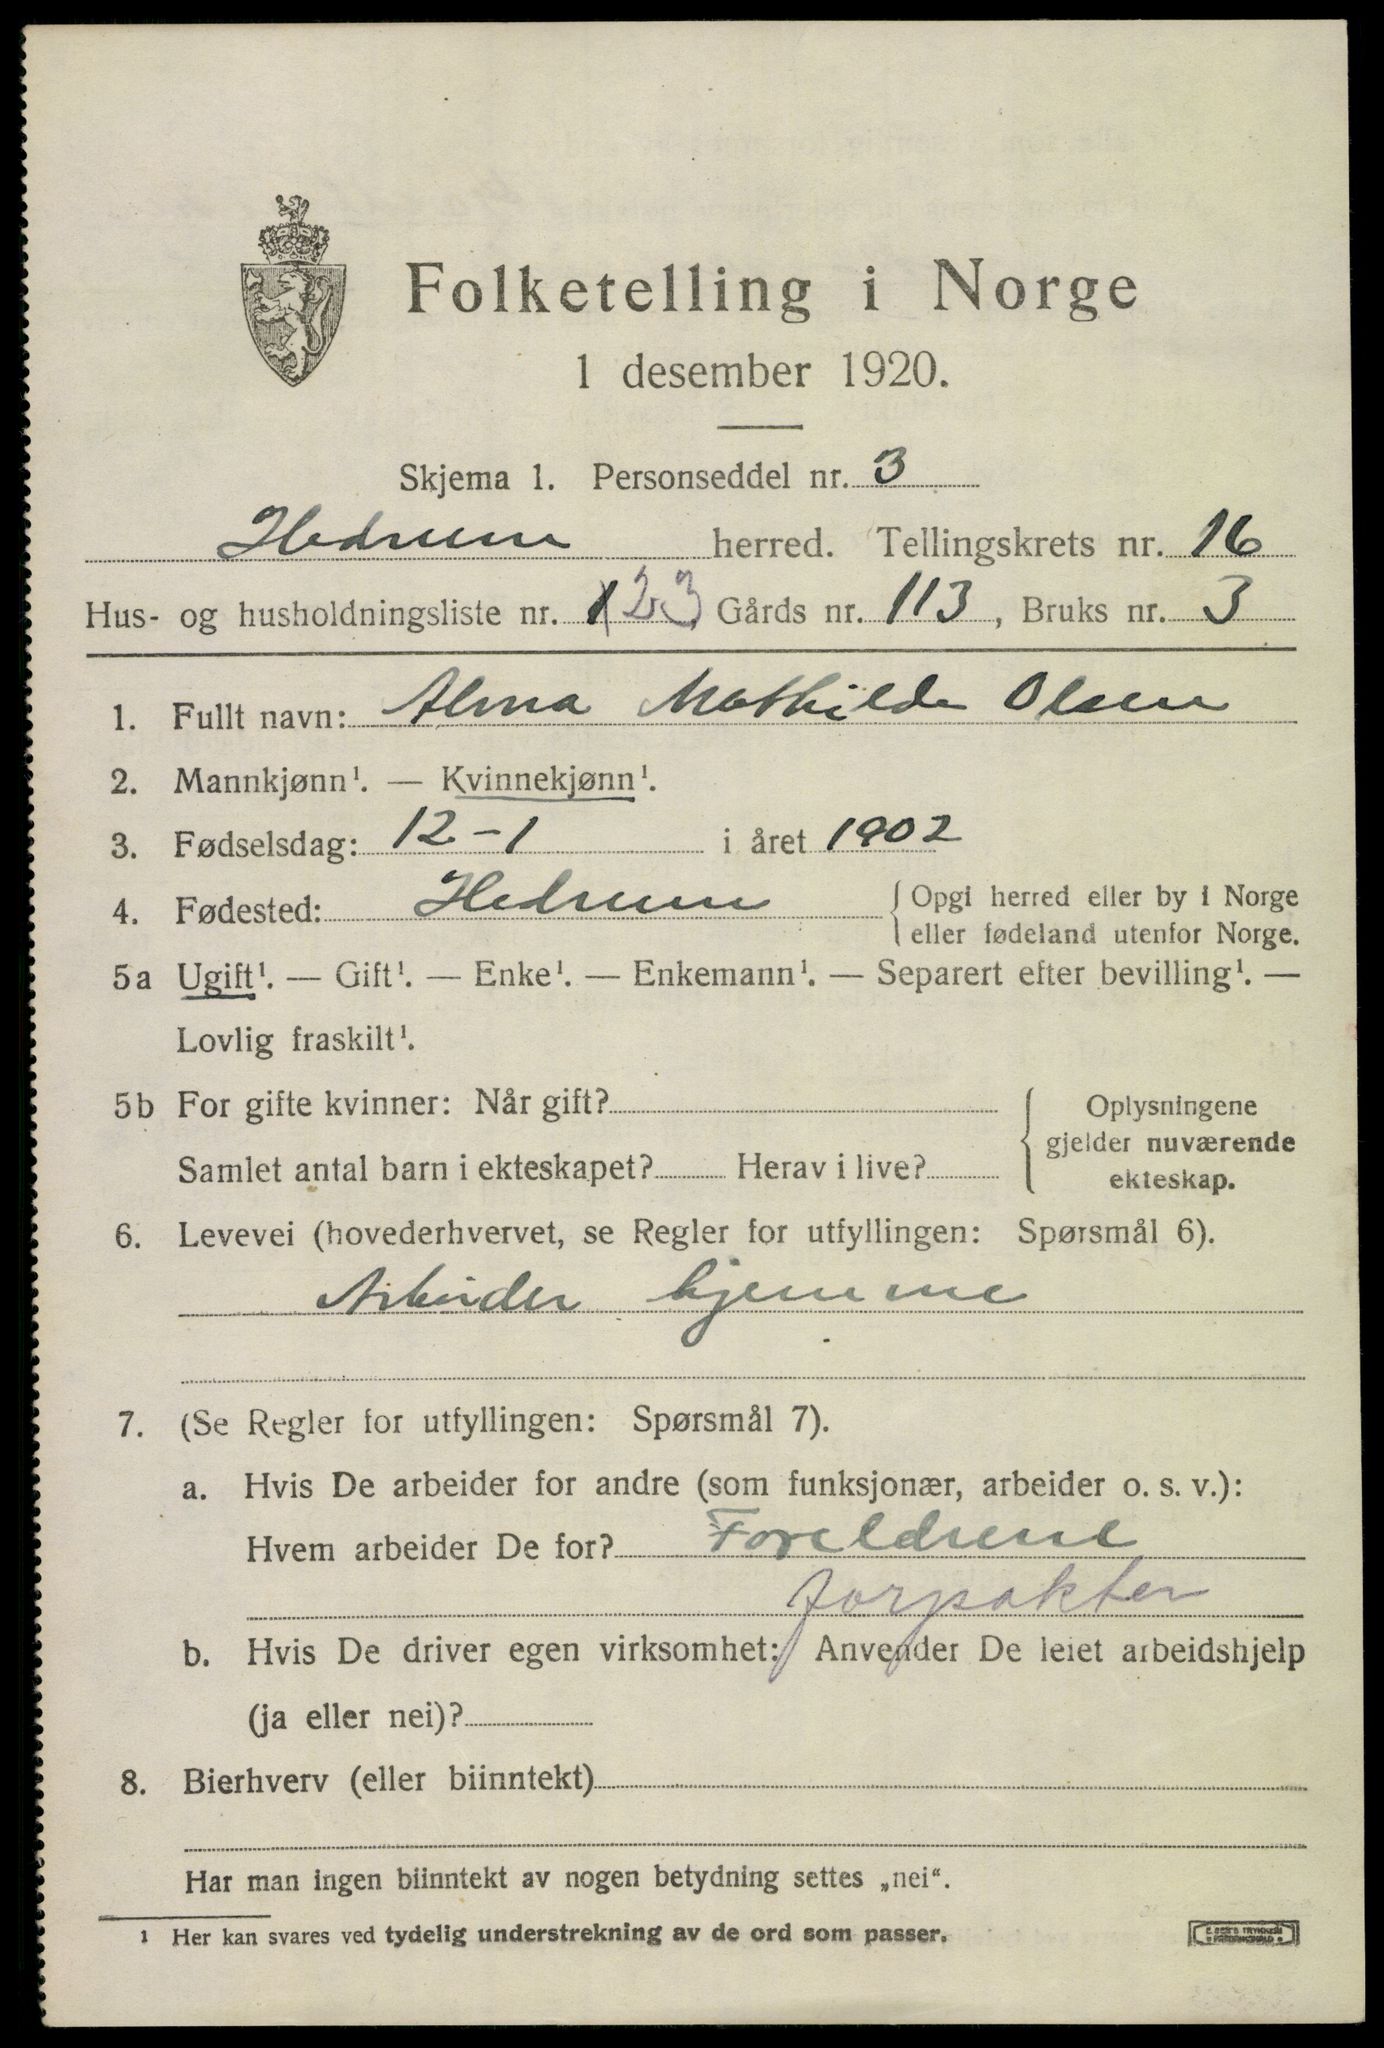 Folketelling i Norge
1 desember 1920.
Skjema 1. Personseddel nr. 3
Hedrum herred. Tellingskrets nr. 16
Hus- og husholdningsliste nr. 1 23 Gårds nr. 113, Bruks nr. 3
1. Fullt navn: Alma Mathilde Olsen
2. Mannkjønn¹. — Kvinnekjønn¹.
3. Fødselsdag: 12-1 i året 1902
4. Fødested: Hedrum { Opgi herred eller by i Norge
eller fødeland utenfor Norge.
5a Ugift¹. — Gift¹. — Enke¹. — Enkemann¹. — Separert efter bevilling¹. —
Lovlig fraskilt¹.
5b For gifte kvinner: Når gift? { Oplysningene
gjelder nuværende
Samlet antal barn i ekteskapet? Herav i live? ekteskap.
6. Levevei (hovederhvervet, se Regler for utfyllingen: Spørsmål 6).
Arbeider hjemme
7. (Se Regler for utfyllingen: Spørsmål 7).
a. Hvis De arbeider for andre (som funksjonær, arbeider o. s. v.):
Hvem arbeider De for? Foreldrene
forpakter
b. Hvis De driver egen virksomhet: Anvender De leiet arbeidshjelp
(ja eller nei)?
8. Bierhverv (eller biinntekt)
Har man ingen biinntekt av nogen betydning settes „nei“.
¹ Her kan svares ved tydelig understrekning av de ord som passer.